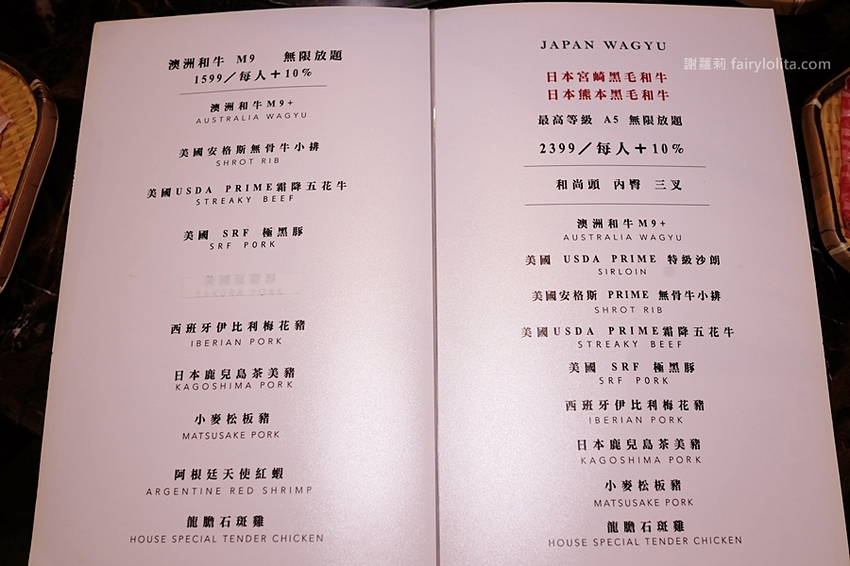 澳洲和牛 M9 無限放題
1599／每人＋10%
澳洲和牛M9+
AUSTRALIA WAGYU
美國安格斯無骨牛小排
SHROT RIB
美國USDA PRIME霜降五花牛
STREAKY BEEF
美國 SRF 極黑豚
SRF PORK
西班牙伊比利梅花豬
IBERIAN PORK
日本鹿兒島茶美豬
KAGOSHIMA PORK
小麥松板豬
MATSUSAKE PORK
阿根廷天使紅蝦
ARGENTINE RED SHRIMP
龍膽石斑雞
HOUSE SPECIAL TENDER CHICKEN
JAPAN WAGYU
謝蘿莉 fairylolita.com
日本宮崎黑毛和牛
日本熊本黑毛和牛
最高等級 A5 無限放題
2399／每人＋10%
和尚頭 內臀 三叉
澳洲和牛M9+
AUSTRALIA WAGYU
美國 USDA PRIME 特級沙朗
SIRLOIN
美國安格斯 PRIME 無骨牛小排
SHROT RIB
美國USDA PRIME霜降五花牛
STREAKY BEEF
美國 SRF 極黑豚
SRF PORK
西班牙伊比利梅花豬
IBERIAN PORK
日本鹿兒島茶美豬
KAGOSHIMA PORK
小麥松板豬
MATSUSAKE PORK
龍膽石斑雞
HOUSE SPECIAL TENDER CHICKEN